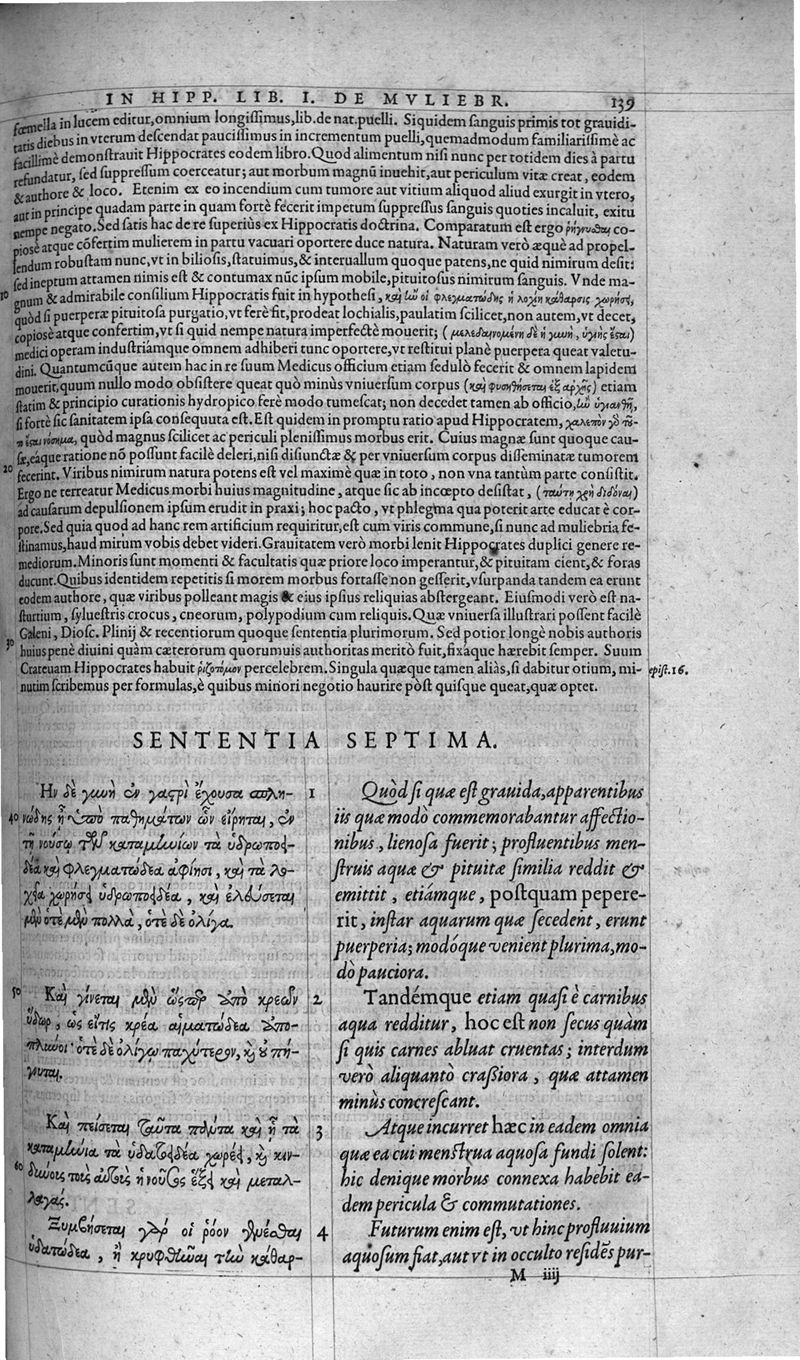 IN HIPP. LIB. I. DE MVLIEBR. 139
fœmella in lucem editur, omnium longiſſimus, lib. de nat. puelli. Siquidem ſanguis primis tot grauidi-
tatis diebus in vterum deſcendat pauciſſimus in incrementum puelli, quemadmodum familiariſſimè ac
facillimè demonſtrauit Hippocrates eodem libro. Quod alimentum niſi nunc per totidem dies à partu
refundatur, ſed ſuppreſſum coerceatur; aut morbum magnū inuehit, aut periculum vitæ creat, eodem
& authore & loco. Etenim ex eo incendium cum tumore aut vitium aliquod aliud exurgit in vtero,
aut in principe quadam parte in quam fortè fecerit impetum ſuppreſſus ſanguis quoties incaluit, exitu
nempe negato. Sed ſatis hac de re ſuperiùs ex Hippocratis doctrina. Comparatum eſt ergo ῥήγνυσθαι co-
piosè atque cōfertim mulierem in partu vacuari oportere duce natura. Naturam verò æquè ad propel-
lendum robuſtam nunc, vt in bilioſis, ſtatuimus, & interuallum quoque patens, ne quid nimirum deſit:
ſed ineptum attamen nimis eſt & contumax nūc ipſum mobile, pituitoſus nimirum ſanguis. Vnde ma-
10 gnum & admirabile conſilium Hippocratis fuit in hypotheſi, καὶ ἢν οἱ φλεγματώδης ἡ λοχίη κάθαρσις χωρήσῃ,
quòd ſi puerperæ pituitoſa purgatio, vt ferè fit, prodeat lochialis, paulatim ſcilicet, non autem, vt decet,
copiosè atque confertim, vt ſi quid nempe natura imperfectè mouerit; (μελεδαινομένη δὲ ἡ γυνὴ, ὑγιὴς ἔσται)
medici operam induſtriámque omnem adhiberi tunc oportere, vt reſtitui planè puerpera queat valetu-
dini. Quantumcũque autem hac in re ſuum Medicus officium etiam ſedulò fecerit & omnem lapidem
mouerit, quum nullo modo obſiſtere queat quò minùs vniuerſum corpus (καὶ φυσηθήσεται ἐξ ἀρχῆς) etiam
ſtatim & principio curationis hydropico ferè modo tumeſcat; non decedet tamen ab officio, ἢν ὑγιανθῇ,
ſi fortè ſic ſanitatem ipſa conſequuta eſt. Eſt quidem in promptu ratio apud Hippocratem, χαλεπὸν γὸ τὸ-
ἔσται νόσημα, quòd magnus ſcilicet ac periculi pleniſſimus morbus erit. Cuius magnæ ſunt quoque cau-
ſæ, eáque ratione nō poſſunt facilè deleri, niſi diſiunctæ & per vniuerſum corpus diſſeminatæ tumorem
20 fecerint. Viribus nimirum natura potens eſt vel maximè quæ in toto, non vna tantùm parte conſiſtit.
Ergo ne terreatur Medicus morbi huius magnitudine, atque ſic ab incœpto deſiſtat, (ταύτῃ χρὴ διδόναι)
ad cauſarum depulſionem ipſum erudit in praxi; hoc pacto, vt phlegma qua poterit arte educat è cor-
pore. Sed quia quod ad hanc rem artificium requiritur, eſt cum viris commune, ſi nunc ad muliebria fe-
ſtinamus, haud mirum vobis debet videri. Grauitatem verò morbi lenit Hippocrates duplici genere re-
mediorum. Minoris ſunt momenti & facultatis quæ priore loco imperantur, & pituitam cient, & foras
ducunt. Quibus identidem repetitis ſi morem morbus fortaſſe non geſſerit, vſurpanda tandem ea erunt
eodem authore, quæ viribus polleant magis & eius ipſius reliquias abſtergeant. Eiuſmodi verò eſt na-
ſturtium, ſylueſtris crocus, cneorum, polypodium cum reliquis. Quæ vniuerſa illuſtrari poſſent facilè
30 Galeni, Dioſc. Plinij & recentiorum quoque ſententia plurimorum. Sed potior longè nobis authoris
huius penè diuini quàm cæterorum quorumuis authoritas meritò fuit, fixáque hærebit ſemper. Suum
Crateuam Hippocrates habuit ῥιζοτόμον percelebrem. Singula quæque tamen aliàs, ſi dabitur otium, mi- epiſt. 16.
nutim ſcribemus per formulas, è quibus minori negotio haurire pòſt quiſque queat, quæ optet.
SENTENTIA SEPTIMA.
Ἢν δὲ γυνὴ ἐν γαστρὶ ἔχουσα σπλη- 1
40 νώδης ᾖ ὑπὸ παθημάτων ὧν εἴρηται, ἐν
τῇ νούσῳ τῶν καταμηνίων τὰ ὑδρωποει-
δέα καὶ φλεγματώδεα ἀφίησι, καὶ τὰ λο-
χεῖα χωρήσει ὑδρωποειδέα, καὶ ἐλεύσεται
μὲν ὁτὲ μὲν πολλὰ, ὁτὲ δὲ ὀλίγα.
Quòd ſi quæ eſt grauida, apparentibus
iis quæ modò commemorabantur affectio-
nibus, lienoſa fuerit; profluentibus men-
ſtruis aquæ & pituitæ ſimilia reddit &
emittit, etiámque, poſtquam pepere-
rit, inſtar aquarum quæ ſecedent, erunt
puerperia; modóque venient plurima, mo-
dò pauciora.
50 Καὶ γίνεται μὲν ὥσπερ ἀπὸ κρεῶν 2
ὕδωρ, ὡς εἴ τις κρέα αἱματώδεα ἀπο-
πλύνοι· ὁτὲ δὲ ὀλίγῳ παχύτερον, καὶ οὐ πή-
γνυται.
Tandémque etiam quaſi è carnibus
aqua redditur, hoc eſt non ſecus quàm
ſi quis carnes abluat cruentas; interdum
verò aliquantò craſſiora, quæ attamen
minùs concreſcant.
Καὶ πείσεται ταῦτα πάντα καὶ ᾗ τὰ 3
καταμήνια τὰ ὑδατοειδέα χωρέει, καὶ κιν-
60 δύνοις τοῖς αὐτοῖς ἡ νοῦσος ἕξει καὶ μεταλ-
λαγάς.
Atque incurret hæc in eadem omnia
quæ ea cui menſtrua aquoſa fundi ſolent:
hic denique morbus connexa habebit ea-
dem pericula & commutationes.
Ξυμβήσεται γὰρ οἱ ῥόον γενέσθαι 4
ὑδατώδεα, ἢ κρυφθεῖσαν τὴν κάθαρ-
Futurum enim eſt, vt hinc profluuium
aquoſum fiat, aut vt in occulto reſidēs pur-
M iiij